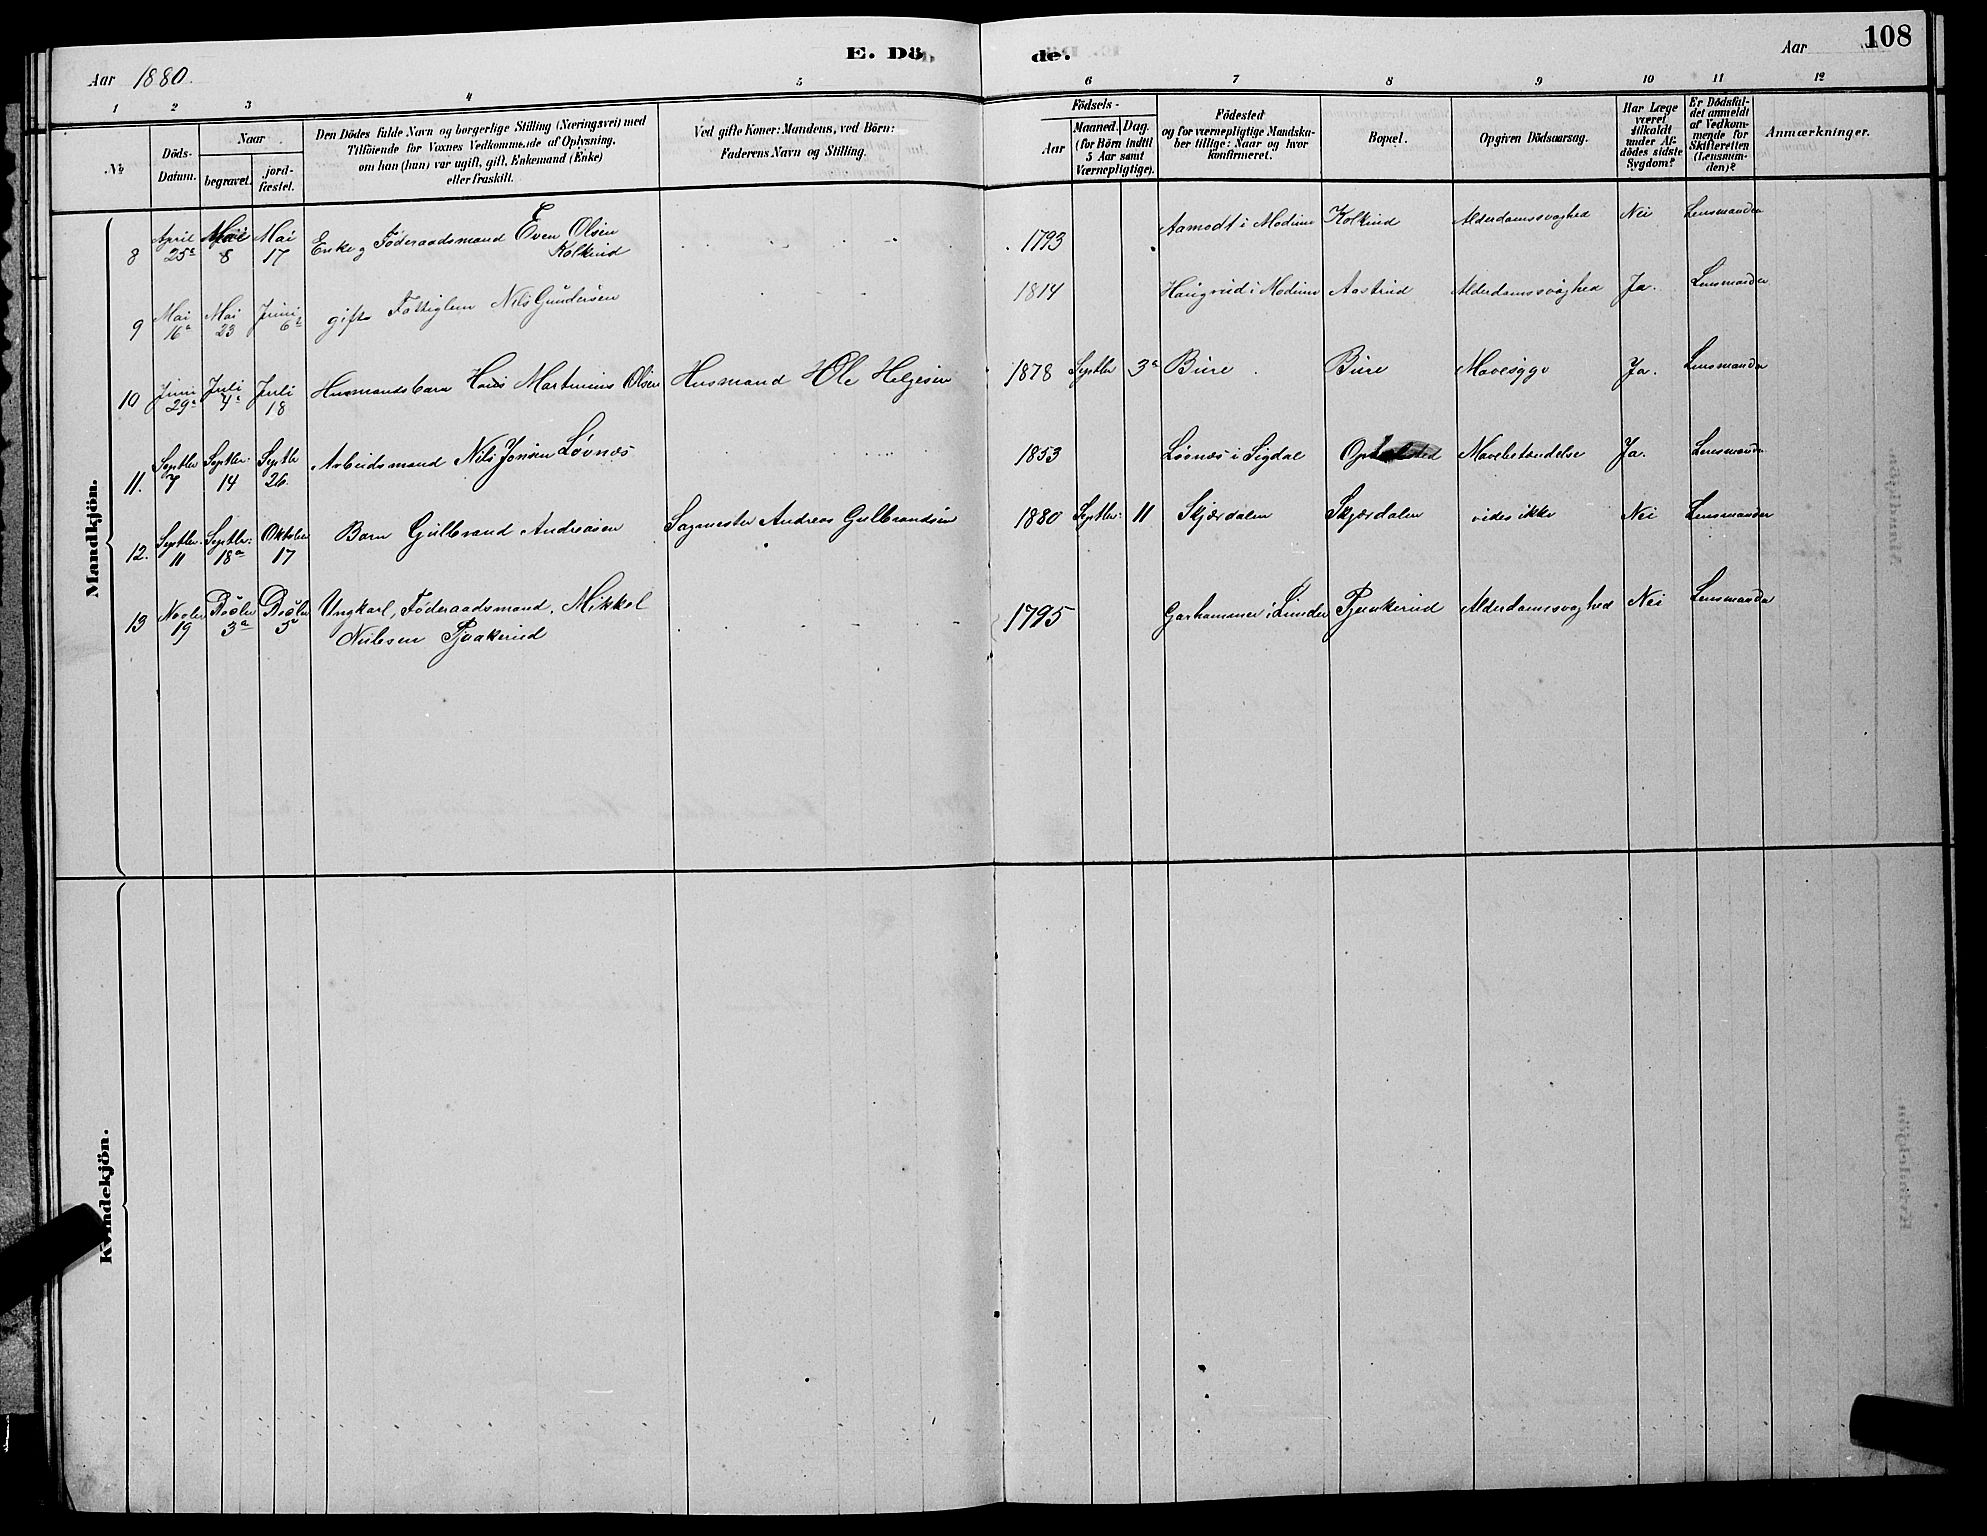 E. Dö
de.
108
Aar 1880.
Aar
1 2 3 4 5 6 7 8 9 10 11 12
No
Döds-
Datum.
Naar
begravet.
jord-
fæstet.
Den Dödes fulde Navn og borgerlige Stilling (Næringsvei) med
Tilföiende for Voxnes Vedkommende af Oplysning,
om han (hun) var ugift, gift, Enkemand (Enke)
eller fraskilt.
Ved gifte Koner: Mandens, ved Börn:
Faderens Navn og Stilling.
Födsels-
Aar
Maaned. Dag.
(for Börn indtil
5 Aar samt
Værnepligtige).
Födested
og for værnepligtige Mandska-
ber tillige: Naar og hvor
konfirmeret.
Bopæl.
Opgiven Dödsaarsag.
Har Læge
været
tilkaldt
under Af-
dödes sidste
Sygdom?
Er Dödsfal-
det anmeldt
af Vedkom-
mende for
Skifteretten
(Lensman-
den)?
Anmærkninger.
Mandkjön.
8 April 25de Mai 8 Mai 17 Enke og Föderaadsmand Even Olsen 1793 Aamodt i Modum Kolkind Alderdamssvaghed Nei Lensmanden
Kolkind
9 Mai 16de Mai 23 Juni 6te gift Fattiglem Nils Gundersen 1814 Haugrud i Modum Aastrud Alderdamssvaghed Ja. Lensmanden
10 Juni 29de Juli 4de Juli 18 Husmandsbarn Hans Martinius Olsen Husmand Ole Helgesen 1878 Septbr 3de Bure Bure Mavesyge Ja. Lensmanden
11. Septbr 7 Septbr. 14 Septbr 26. Arbeidsmand Nils Jonsen Lövnæs 1853 Lövnæs i Sigdal Mavebetændelse Ja. Lensmanden
12. Septbr. 11 Septbr. 18de Oktober 17 Barn Gulbrand Andreasen Sagmester Andreas Gulbrandsen 1880 Septbr. 11 Skjærdalen Skjærdalen vides ikke Nei Lensmanden
13 Novbr 19 Decbr 3de Decbr 5te Ungkarl, Föderaadsmand, Mikkel 1795 Garhammer i Lunder Alderdamssvaghed Nei Lensmanden
Nilsen
Kvindekjön.